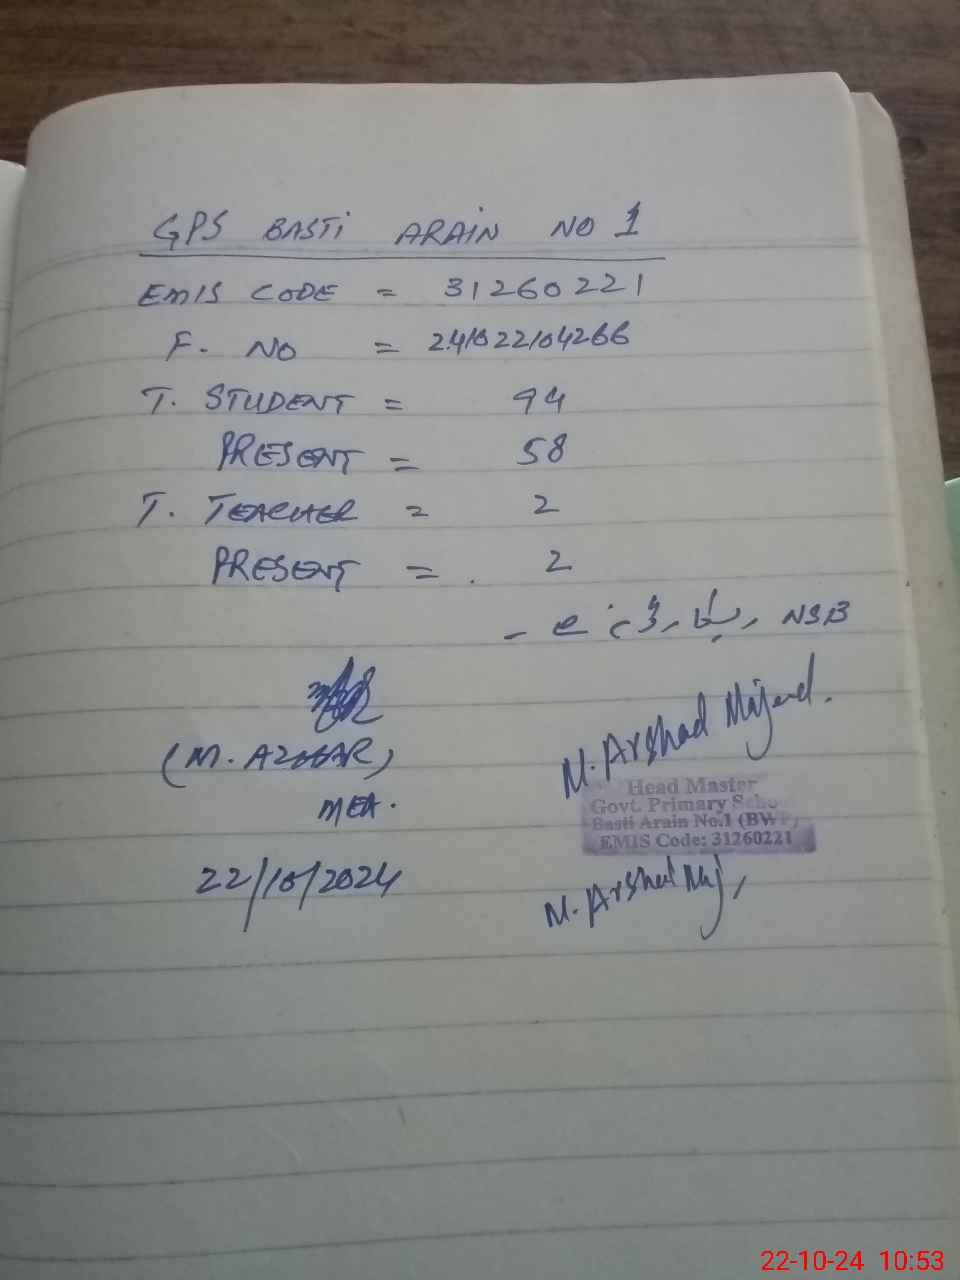 GPS BASTi ARAIN NO 1
EMIS CODE = 31260221
F. NO = 241022104266
T. STUDENT = 94
PRESENT = 58
T. TEACHER = 2
PRESENT = 2
NSB ریکارڈ ہے -
(M. AZHAR)
MEA.
22/10/2024
M. Arshad Majeed.
Head Master
Govt. Primary Scho
Basti Arain No.1 (BWP)
EMIS Code: 31260221
M. Arshad Maj,
22-10-24 10:53